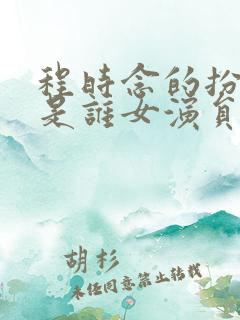 程時念的扮
是誰女演員
胡杉
未經同意禁止轉載